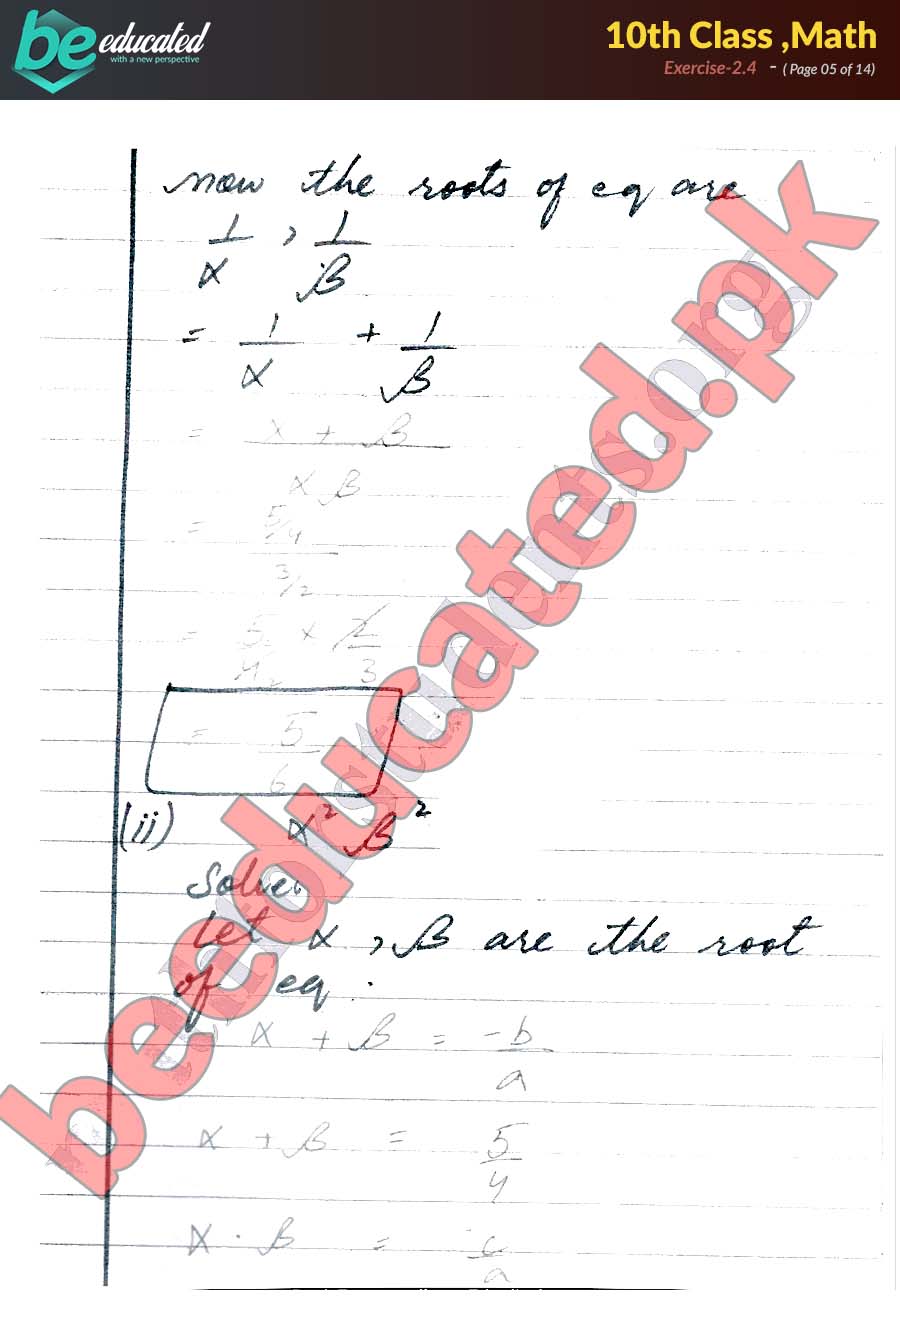 be educated
with a new perspective
10th Class ,Math
Exercise-2.4 - ( Page 05 of 14)
now the roots of eq are
1/α , 1/β
= 1/α + 1/β
= α + β / αβ
= 5/4 / 3/2
= 5/4 × 2/3
= 5/6
(ii) α² β²
Solve:
Let α , β are the root
of eq .
α + β = -b/a
α + β = 5/4
α . β = c/a
beeducated.pk